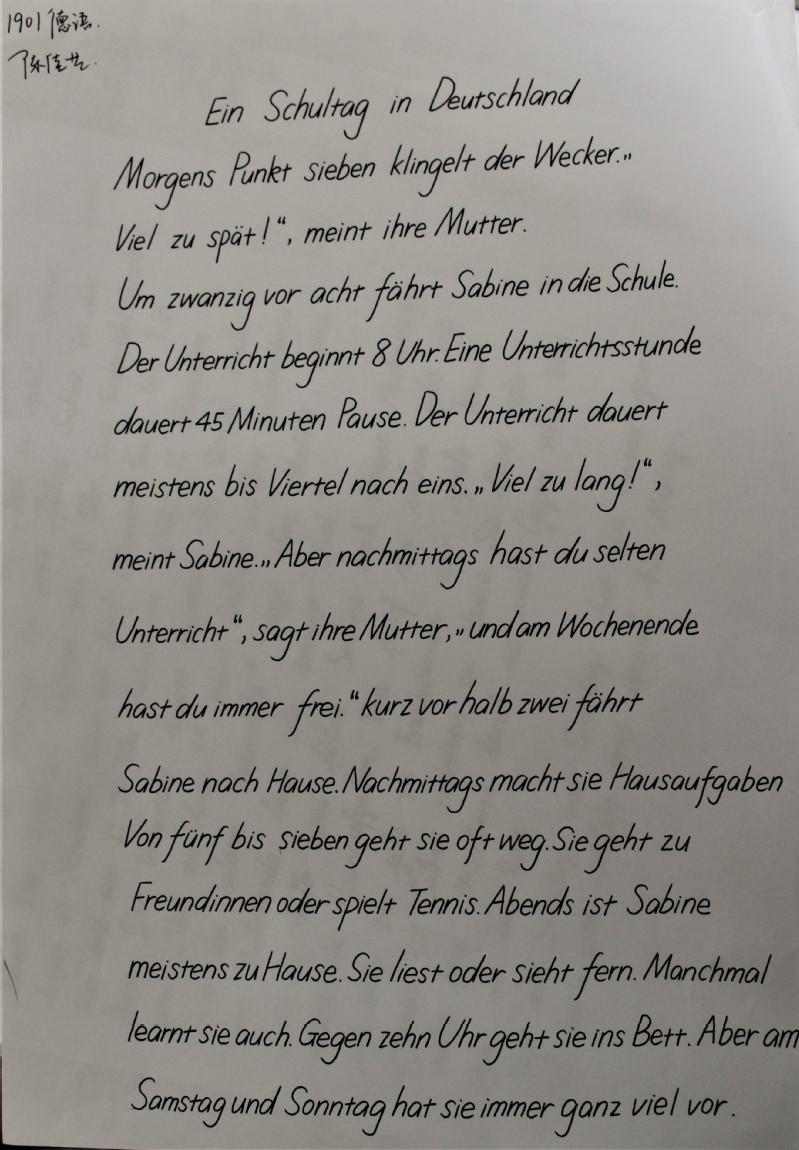 1901德语.
陈佳艺.
Ein Schultag in Deutschland
Morgens Punkt sieben klingelt der Wecker.„
Viel zu spät!“, meint ihre Mutter.
Um zwanzig vor acht fährt Sabine in die Schule.
Der Unterricht beginnt 8 Uhr. Eine Unterrichtsstunde
dauert 45 Minuten Pause. Der Unterricht dauert
meistens bis Viertel nach eins. „Viel zu lang!“,
meint Sabine. „Aber nachmittags hast du selten
Unterricht“, sagt ihre Mutter, „und am Wochenende
hast du immer frei.“ kurz vor halb zwei fährt
Sabine nach Hause. Nachmittags macht sie Hausaufgaben
Von fünf bis sieben geht sie oft weg. Sie geht zu
Freundinnen oder spielt Tennis. Abends ist Sabine
meistens zu Hause. Sie liest oder sieht fern. Manchmal
learnt sie auch. Gegen zehn Uhr geht sie ins Bett. Aber am
Samstag und Sonntag hat sie immer ganz viel vor.